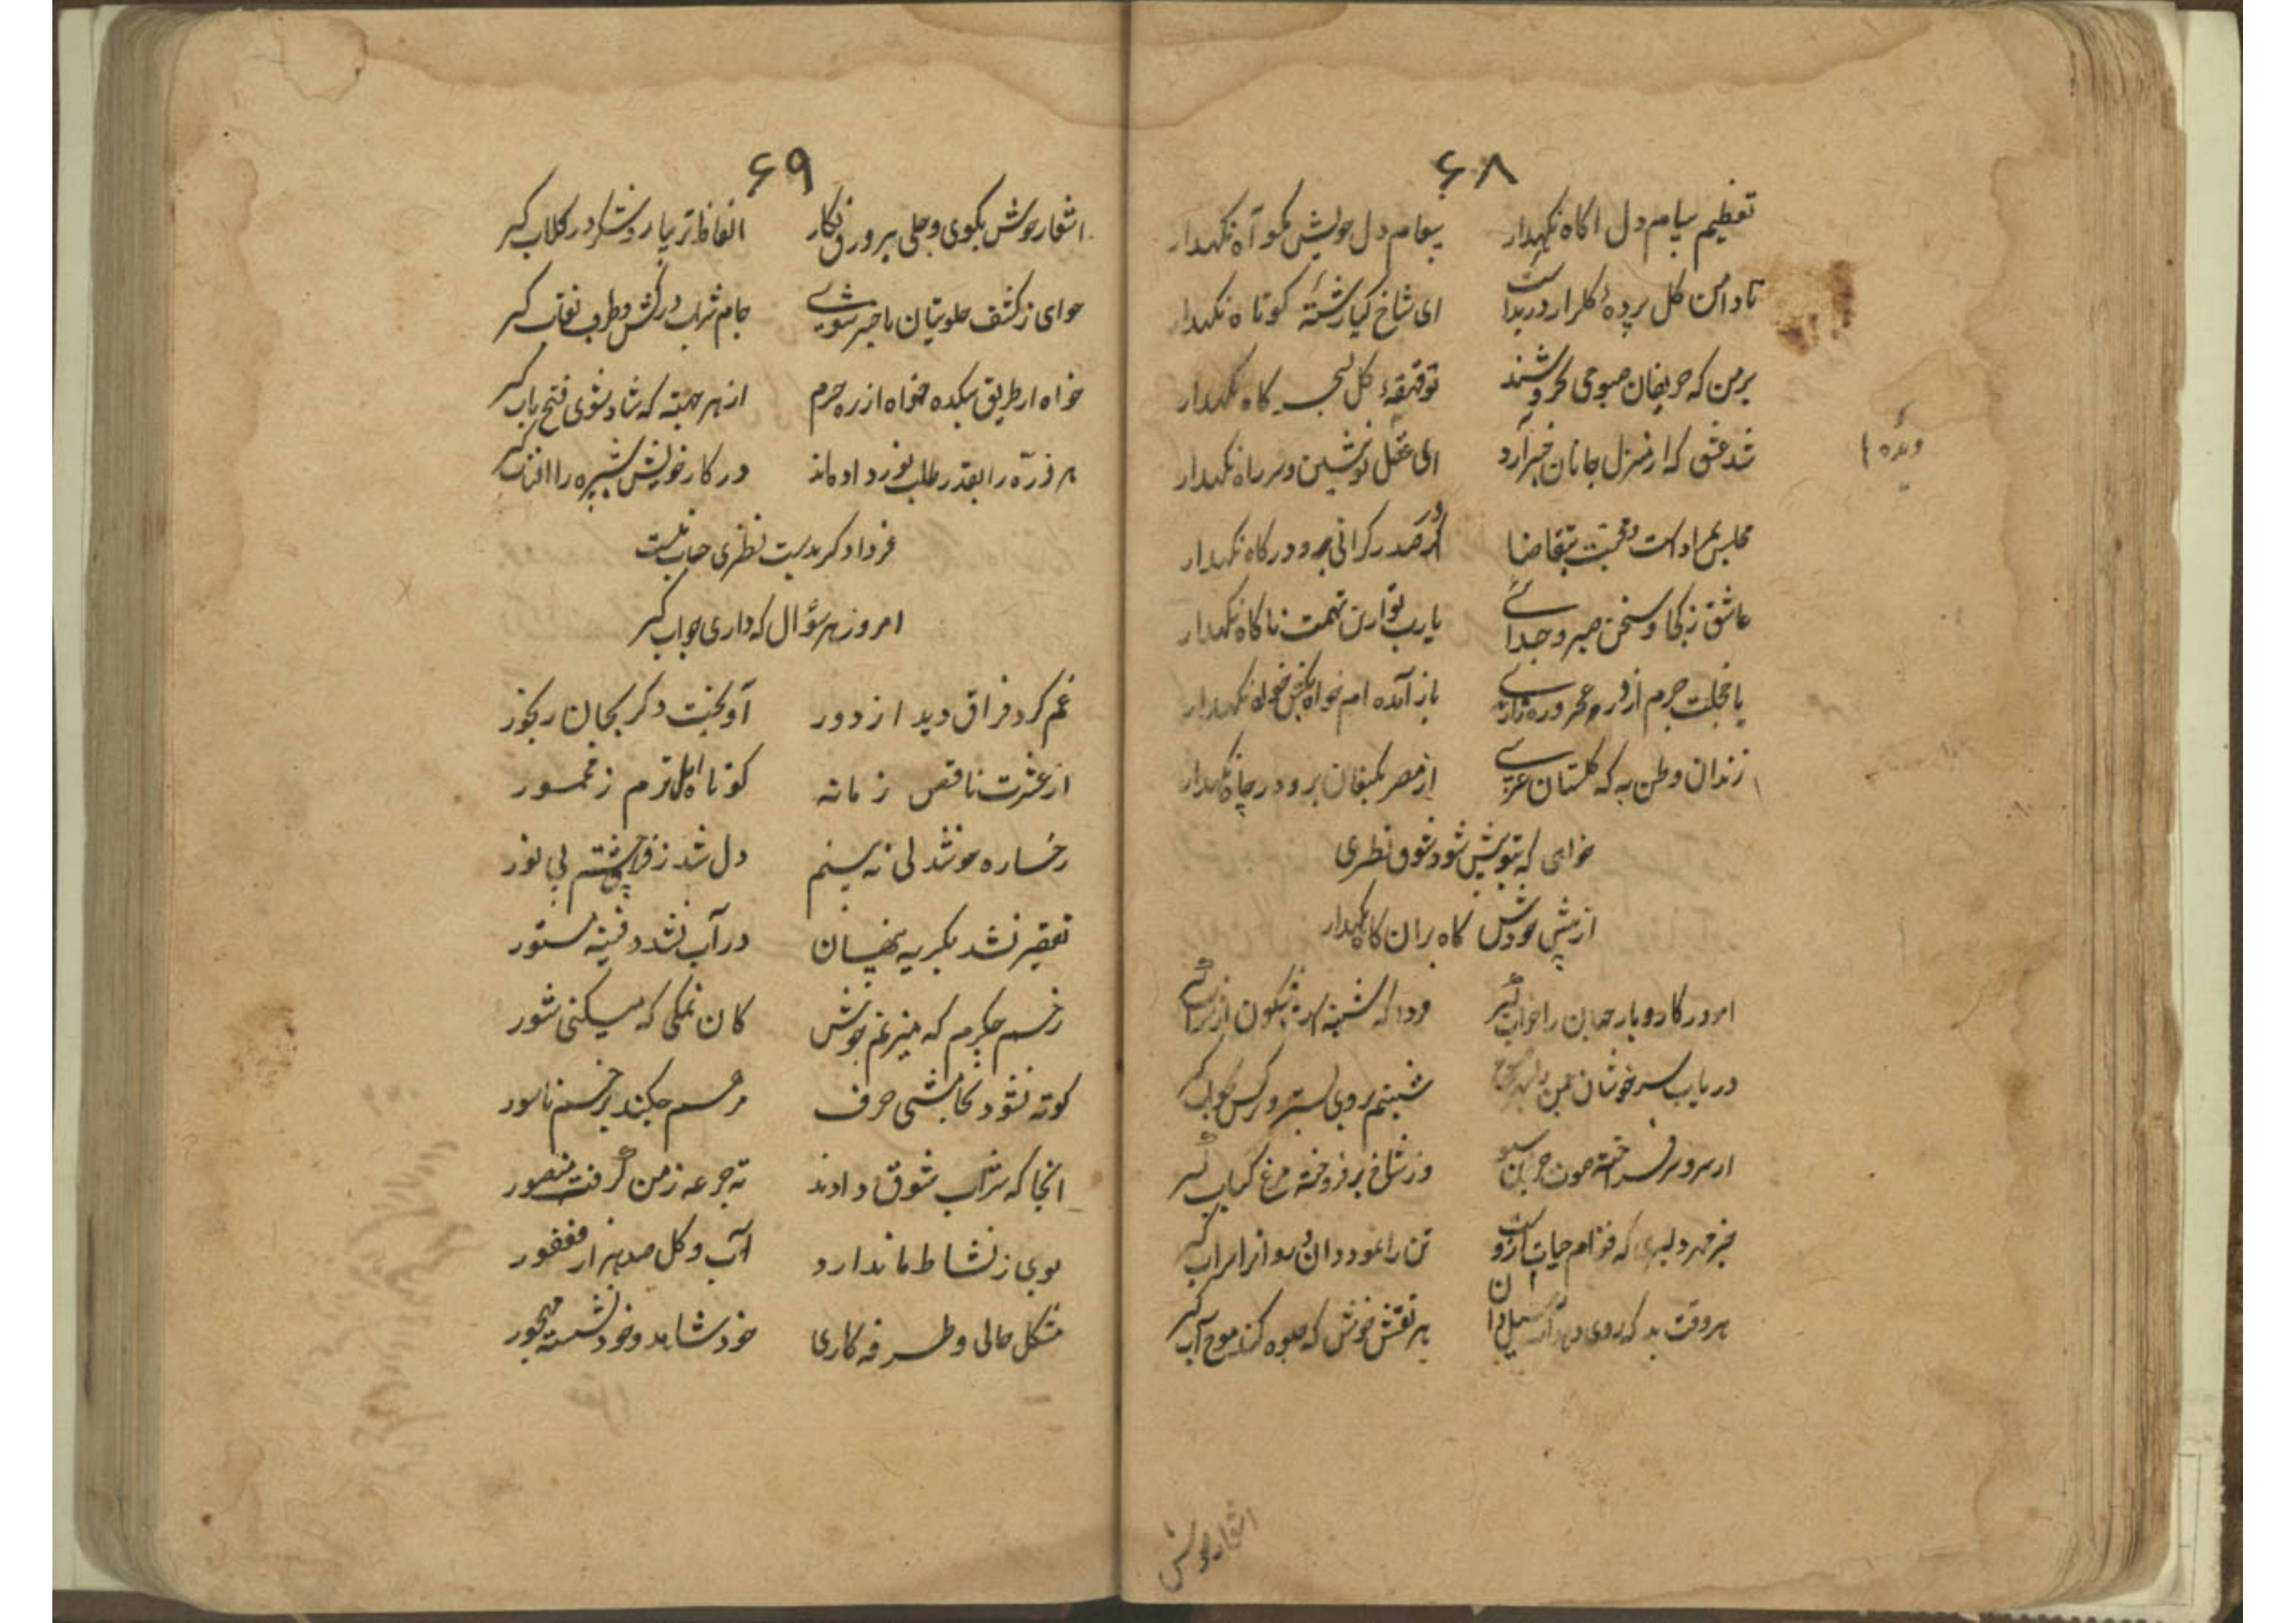 ۶۸
تعظیم پیام دل اکاه نکهدار پیغام دل خویش مکو آه نکهدار
تا دامن کل پرده کلزار دریدست ای شاخ کیا رشتهٔ کوتاه نکهدار
بر من که حریفان صبوحی نخروشند تو قهقههٔ کل نکهدار
شد عشق که از منزل جانان خبر آرد ای عقل تو بنشین و سر راه نکهدار
دیده
مجلس بمراد است بتقاضا در صدر کرانی برو درکاه نکهدار
عاشق ز کجا و سخن صبر و جدائی یا رب تو ازین تهمت ناکاه نکهدار
با خجلت جرم از در باز آمده ام خواه بکش خواه نکهدار
زندان وطن به که کلستان غریبی از مصر بکنعان برو و در چاه نکهدار
خواهی که بتو بیش شود شوق نظیری
از پیش خودش کاه بران کاه نکهدار
امروز کار و بار جهان را خراب کیر فردا که
دریاب سرخوشان چمن شبنم بروی بستر و نرکس بخواب کیر
از سرو سر وز شاخ برفروخته مرغ کباب کیر
جز مهر دلبری که قوام حیات ازوست تن را نمود دان و روان را سراب کیر
هر وقت بد که روی دهد آب سیل دان هر نقش خوش که جلوه کند موج آب کیر
اشعار خوش
۶۹
اشعار خوش بکوی و جلی بر ورق نکار الفاظ تر بیار و شکر در کلاب کیر
خواهی ز کشف خلوتیان باخبر شوی جام شراب درکش و طرف نقاب کیر
خواه از طریق میکده خواه از ره حرم از هر جهته که شاد شوی فتح باب کیر
هر ذره را بقدر طلب نور داده اند در کار خویش شپره را افتاب کیر
فردا دکر بدست نظیری حساب نیست
امروز هر سؤال که داری جواب کیر
غم کرد فراق دید از دور آویخت دکر بجان رنجور
از عشرت ناقص زمانه کوتاه املترم ز مخمور
رخساره خوشدلی نه بینم دل شد ز فراق چشم بی نور
تقصیر نشد بکریه پنهان در آب نشد دفینه مستور
زخم جکرم که میزند جوش کان نمکی که میکنی شور
کوته نشود بخامشی حرف مرهم چکند بزخم ناسور
انجا که شراب شوق دادند ته جرعه ز من کرفت منصور
بوی ز نشاط ما ندارد آب و کل صد هزار فغفور
مشکل حالی و طرفه کاری خود شاهد و خود نشسته مهجور